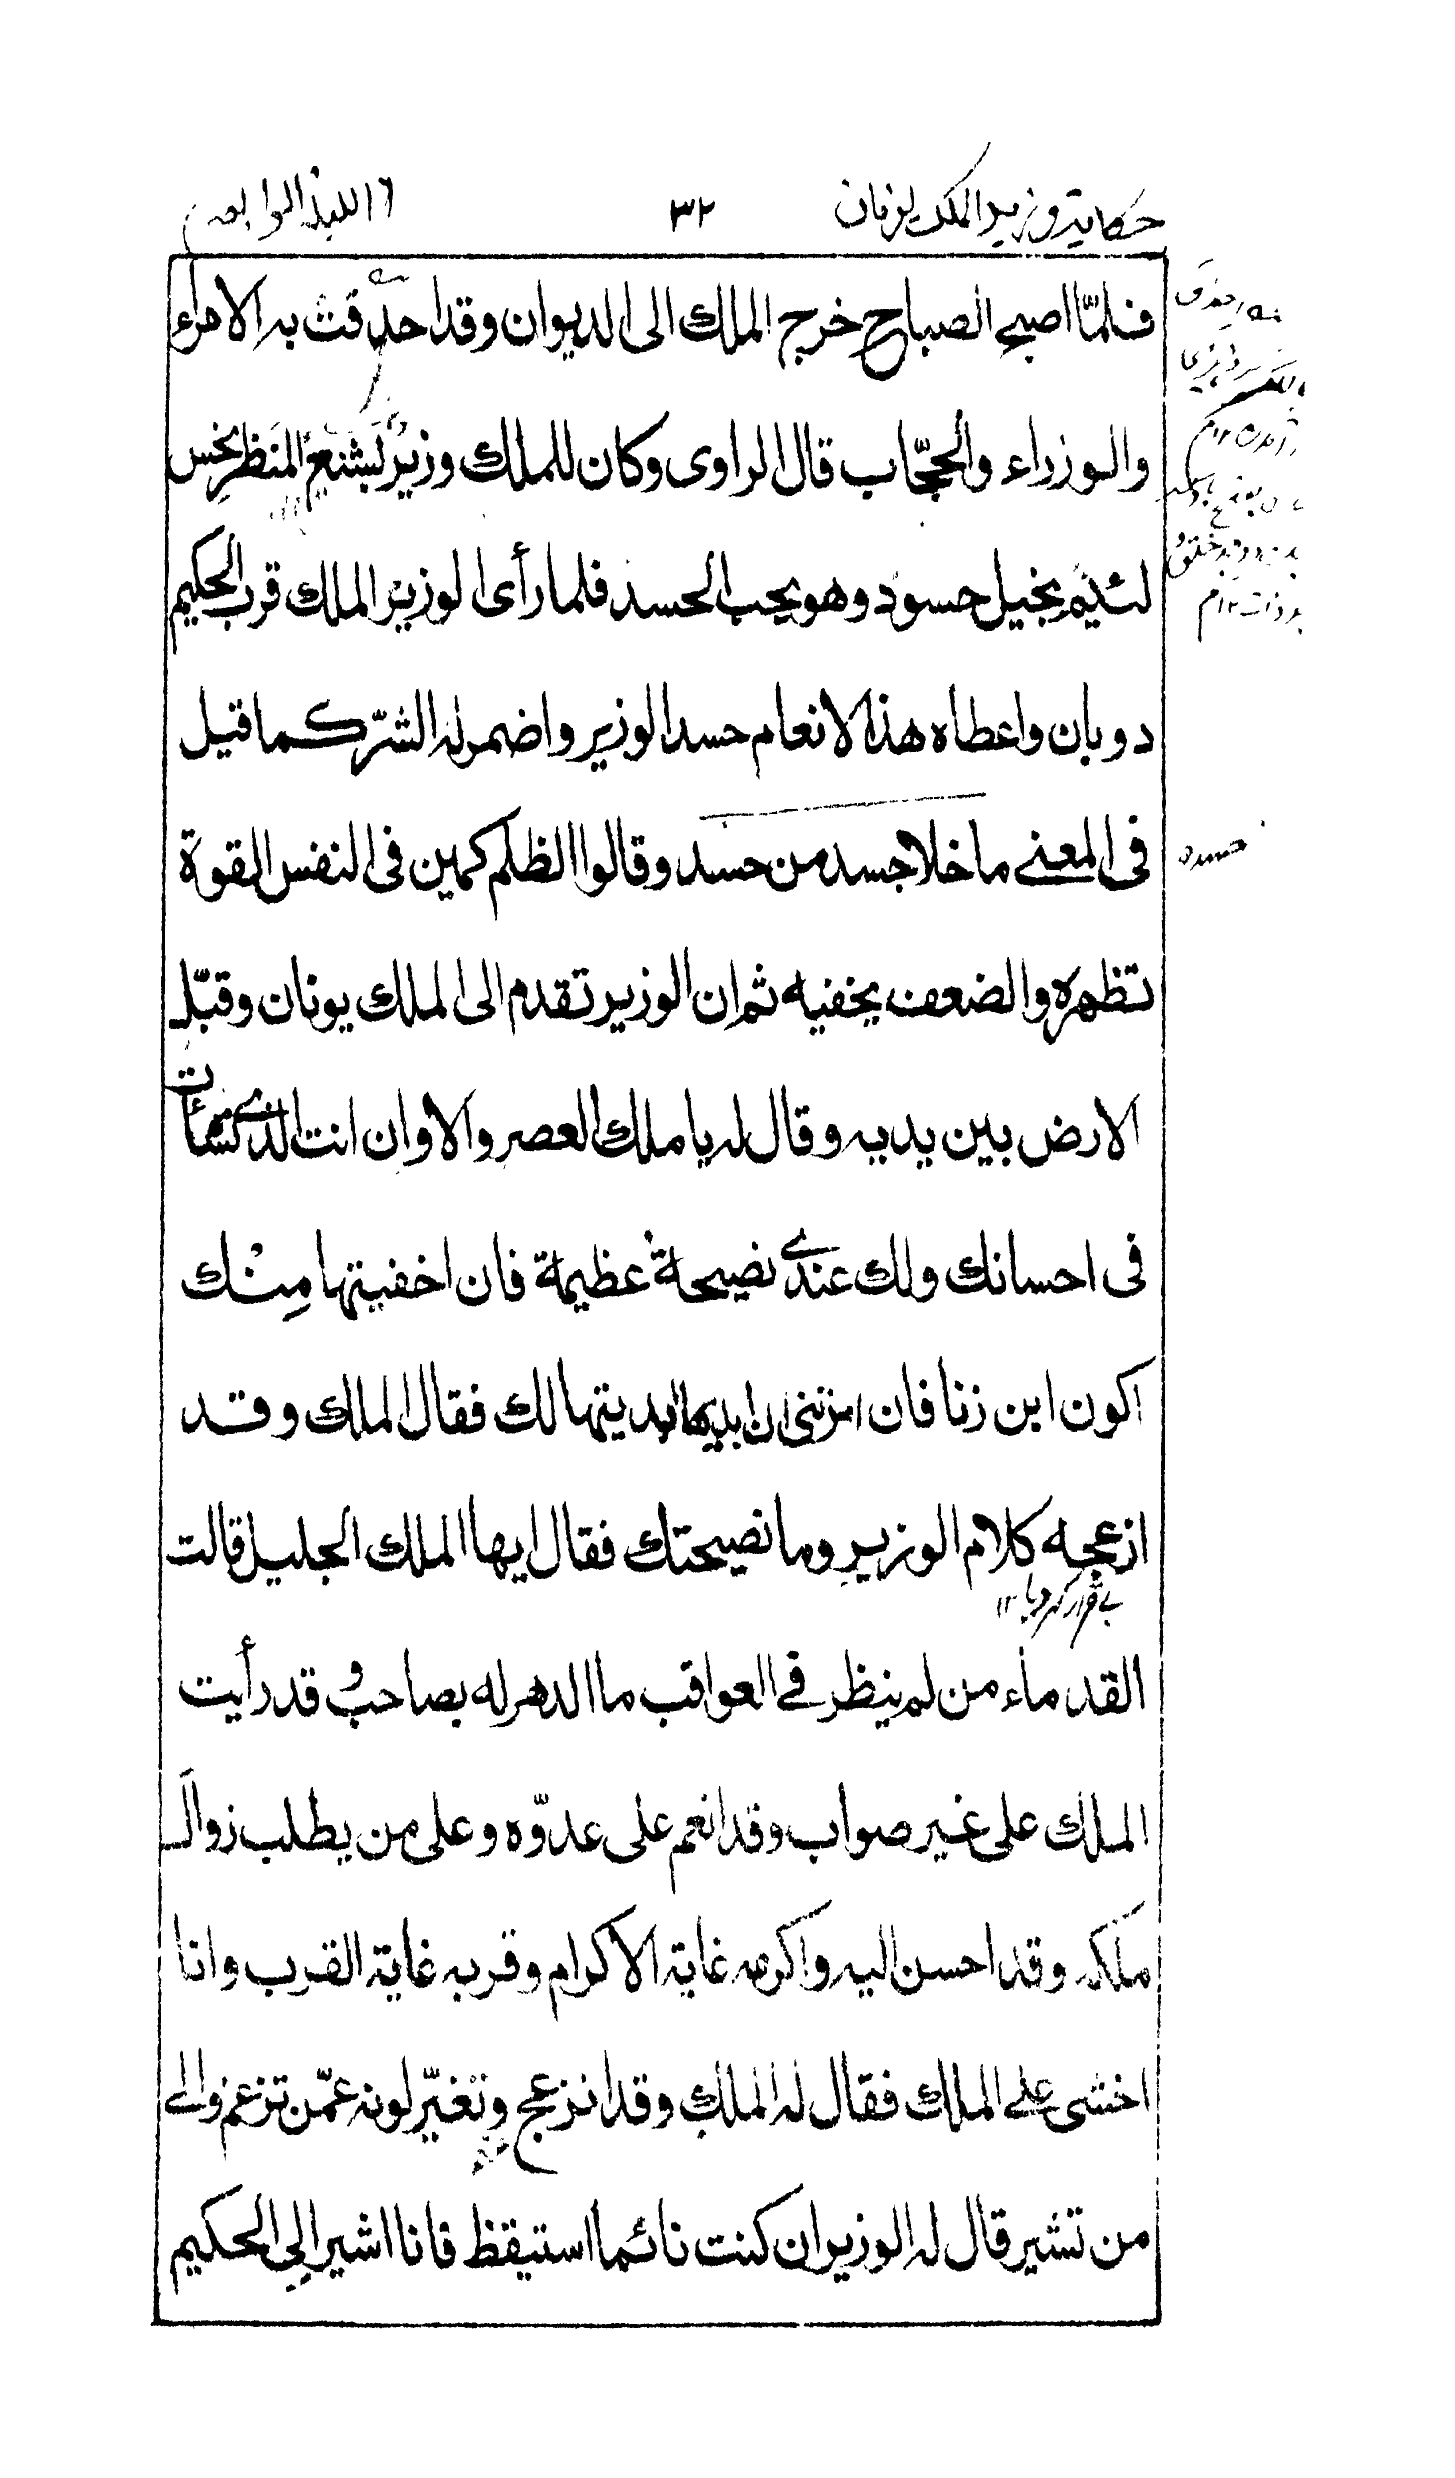 حكاية وزير الملك يونان ٣٢ الليلة الرابعة
فلمّا اصبح الصباح خرج الملك الى الديوان وقد احدقت به الامراء
والوزراء والحجّاب قال الراوى وكان للملك وزير بشنع المنظر نحس
لئيم بخيل حسود وهو يحب الحسد فلما رأى الوزير الملك قرب الحكيم
دوبان واعطاه هذا الانعام حسد الوزير واضمر له الشرّ كما قيل
فى المعنى ما خلا جسد من حسد وقالوا الظلم كمين فى النفس القوة
تظهره والضعف يخفيه ثم ان الوزير تقدم الى الملك يونان وقبّل
الارض بين يديه وقال له يا ملك العصر والاوان انت الذى نشأت
فى احسانك ولك عندى نصيحة عظيمة فان اخفيتها مِنْك
اكون ابن زنا فان امرتنى ان ابديها ابديتها لك فقال الملك وقد
ازعجه كلام الوزير وما نصيحتك فقال ايها الملك الجليل قالت
بے قرار کر دیا ١٢
القدماء من لم ينظر فى العواقب ما الدهر له بصاحب و قد رأيت
الملك على غير صواب وقد انعم على عدوّه وعلى من يطلب زوال
ملكه وقد احسن اليه واكرمه غاية الاكرام وقربه غاية القرب وانا
اخشى على الملك فقال له الملك وقد انزعج وتغيّر لونه عمّن تزعم والى
من تشير قال له الوزير ان كنت نائما استيقظ فانا اشير الى الحكيم
حسده